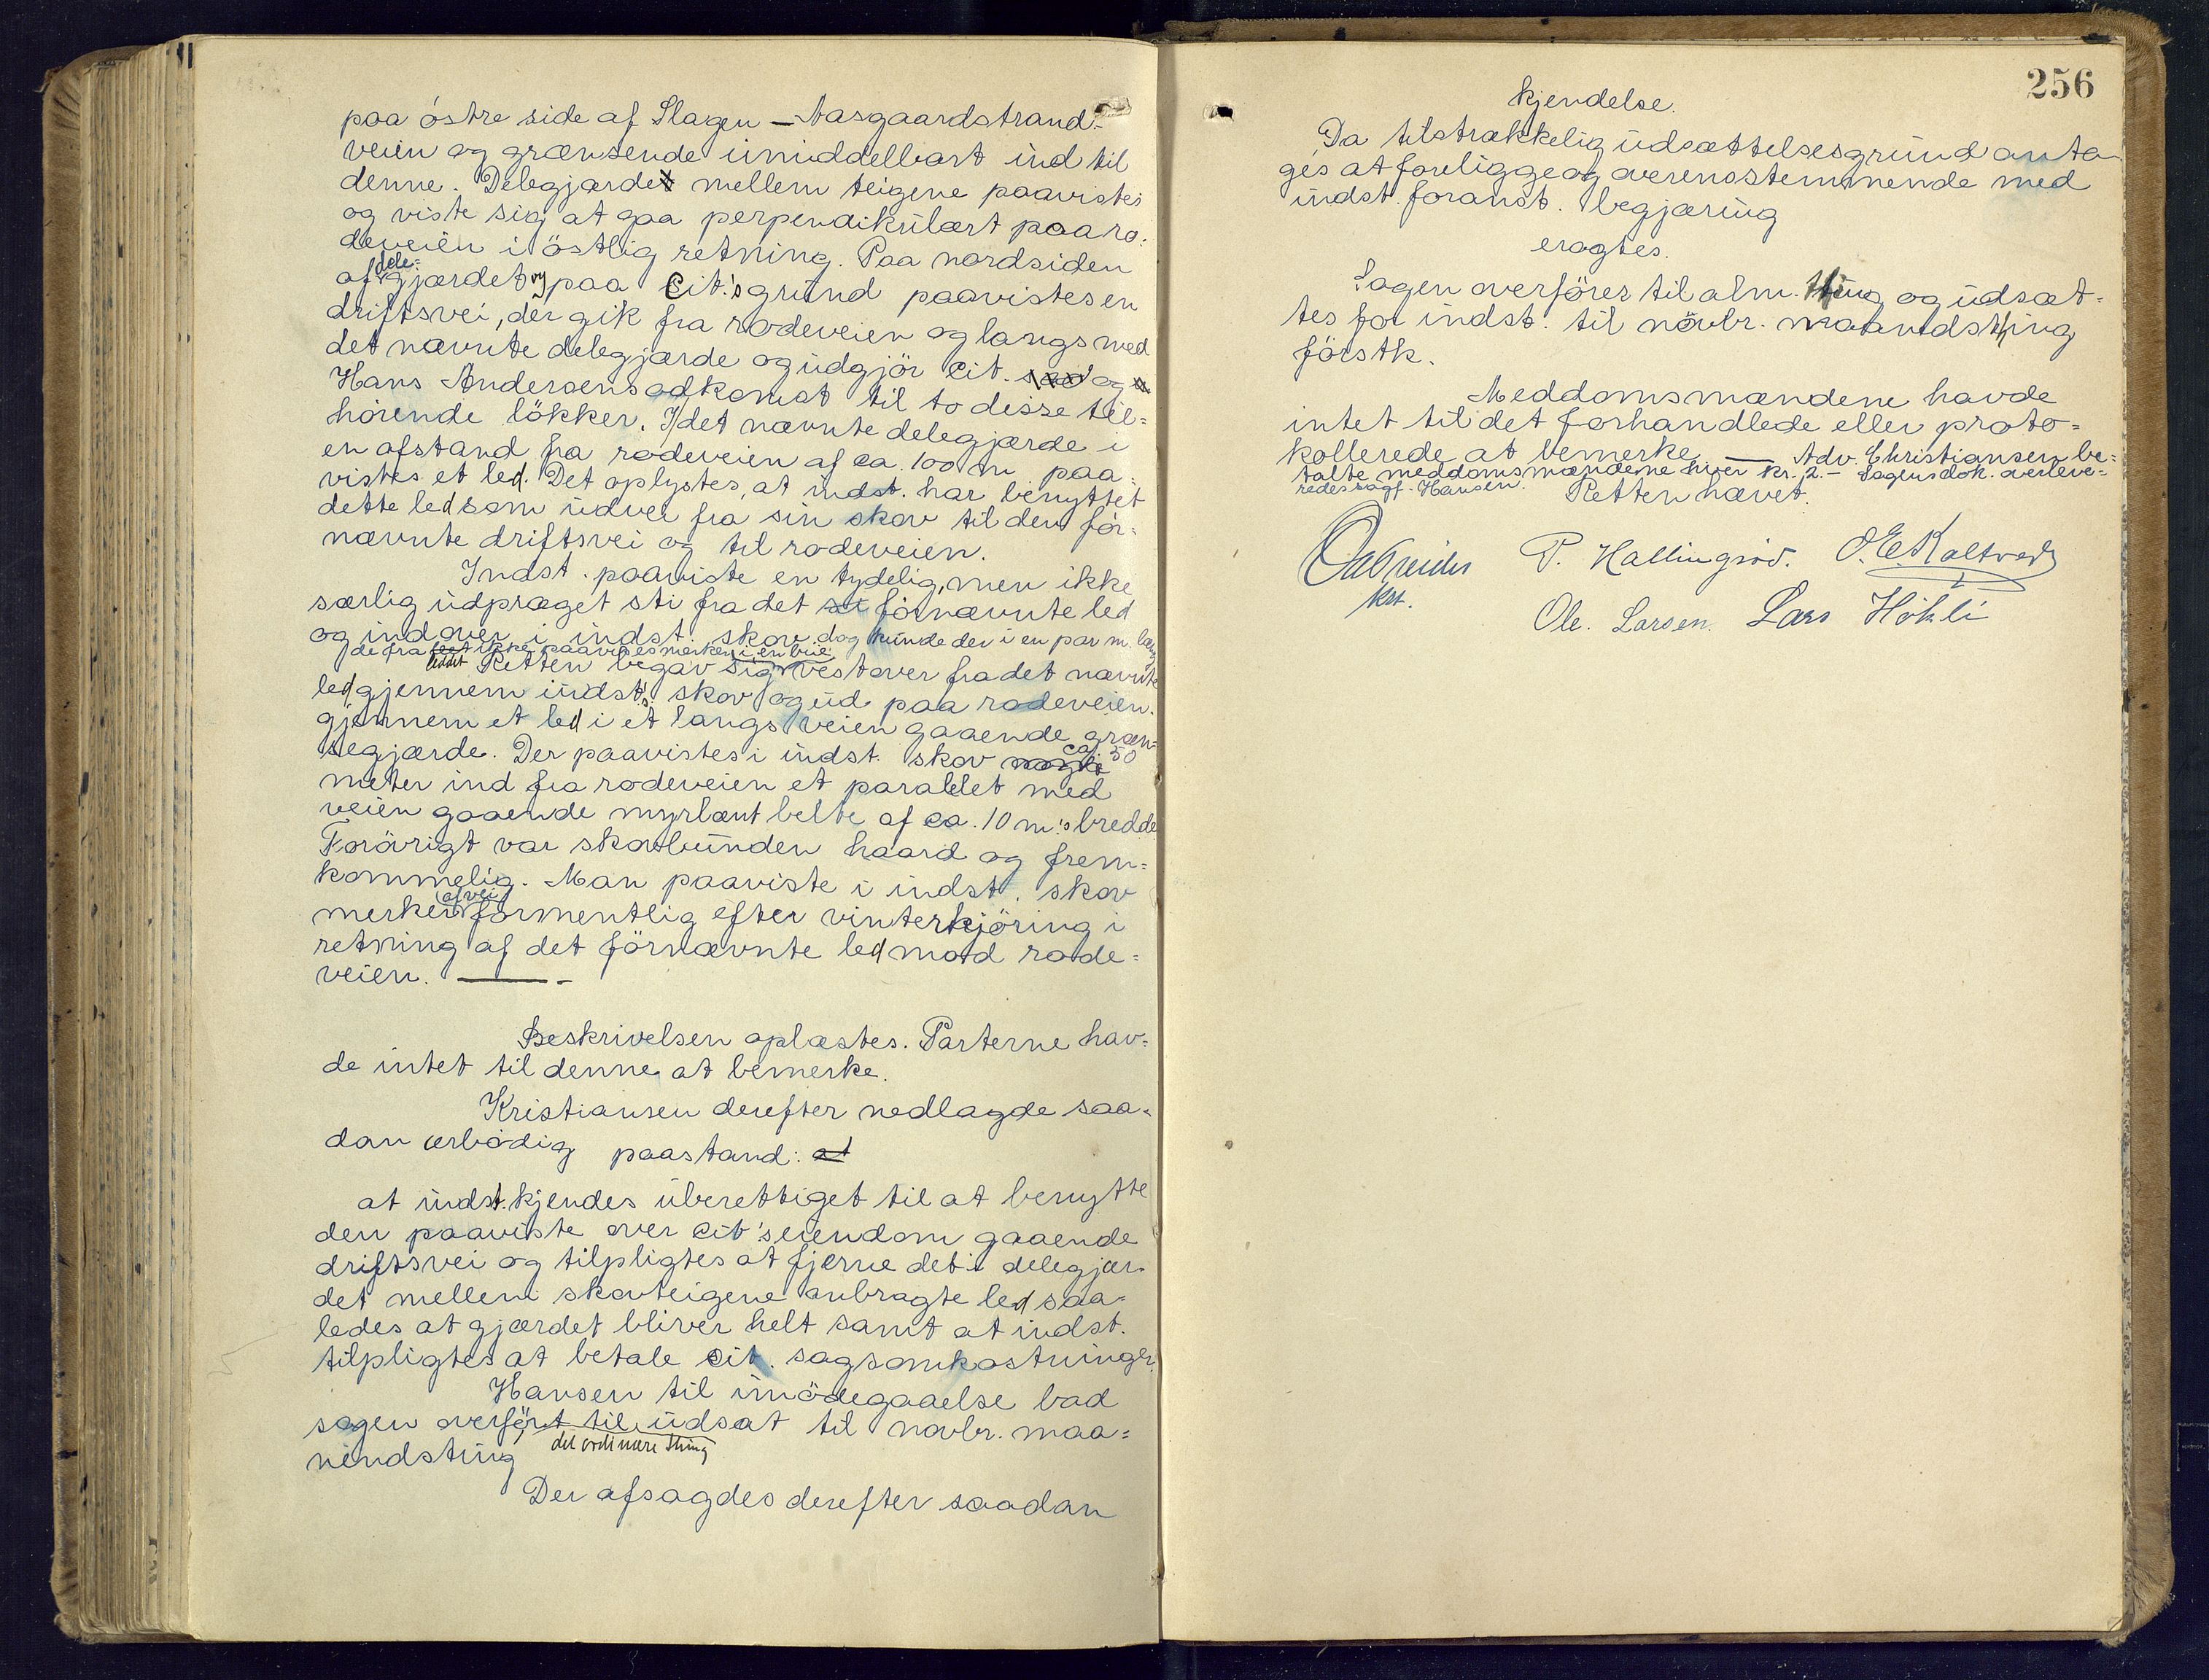 paa östre side af Slagen – Aasgaardstrand-
veien og grænsende umiddelbart ind til
denne. Delegjærdet mellem teigene paavistes
og viste sig at gaa perpendikulært paa ro-
deveien i östlig retning. Paa nordsiden
af dele- gjærdet og paa Cit.'s grund paavistes en
driftsvei, der gik fra rodeveien og langs med
det nævnte delegjærde og udgjör Cit. og
Hans Andersens adkomst til to disse til-
hörende lökker. I det nævnte delegjærde i
en afstand fra rodeveien af ca. 100 m paa-
vistes et led. Det oplystes, at indst. har benyttet
dette led som udvei fra sin skov til den för-
nævnte driftsvei og til rodeveien.
Indst. paaviste en tydelig, men ikke
særlig udpræget sti fra det förnævnte led
og indover i indst. skov. dog kunde der i en par m. læng
de fra leddet ikke paavises merker
Retten begav sig vestover fra det nævnte
led gjennem indst's. skov og ud paa rodeveien.
gjennem et led i et langs veien gaaende græn-
segjærde. Der paavistes i indst. skov ca. 50
meter ind fra rodeveien et parallelt med
veien gaaende myrlænt belte af ca. 10 m's bredde
Forövrigt var skovbunden haard og frem-
kommelig. Man paaviste i indst. skov
merker af vei formentlig efter vinterkjöring i
retning af det förnævnte led mod rode-
veien. —
Beskrivelsen oplæstes. Parterne hav-
de intet til denne at bemerke.
Kristiansen derefter nedlagde saa-
dan ærbödig paastand: at
at indst. kjendes uberettiget til at benytte
den paaviste over cit's eiendom gaaende
driftsvei og tilpligtes at fjerne det i delegjær-
det mellem skovteigene anbragte led saa-
ledes at gjærdet bliver helt samt at indst.
tilpligtes at betale cit. sagsomkostninger.
Hansen til imödegaaelse bad
sagen overfört til det ordinære thing udsat til novbr. maa-
nedsting
Der afsagdes derefter saadan
256
Kjendelse.
Da tilstrækkelig udsættelsesgrund anta-
ges at foreligge og overensstemmende med
indst. foranst. begjæring
eragtes.
Sagen overföres til alm. thing og udsæt-
tes for indst. til növbr. maanedsthing
förstk.
Meddomsmændene havde
intet til det forhandlede eller proto-
kollerede at bemerke — Adv. Christiansen be-
talte meddomsmændene hver kr. 2.– Sagens dok. overleve-
redes sagf. Hansen.
Retten hævet.
P. Hallingröd. O. E. Kaltved
kst.
Ole Larsen. Lars Hökli